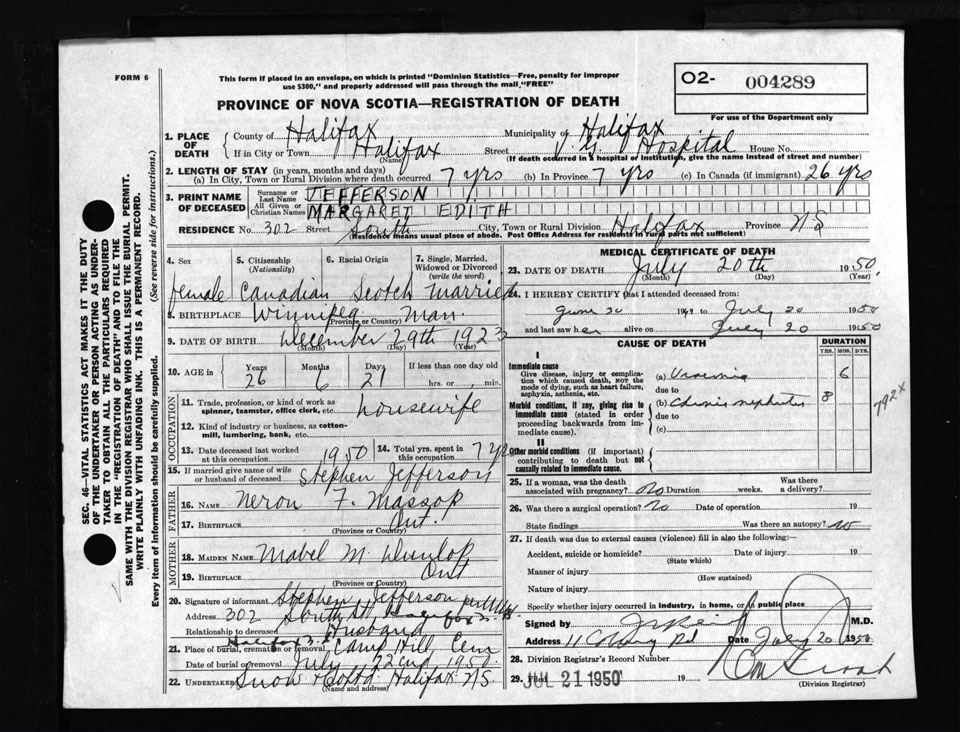 FORM 6
This form if placed in an envelope, on which is printed "Dominion Statistics—Free, penalty for improper
use $300," and properly addressed will pass through the mail "FREE"
PROVINCE OF NOVA SCOTIA—REGISTRATION OF DEATH
O2- 004289
For use of the Department only
1. PLACE OF DEATH
County of Halifax Municipality of Halifax
If in City or Town Halifax Street V. G. Hospital House No.
(Name) (If death occurred in a hospital or institution, give the name instead of street and number)
2. LENGTH OF STAY (in years, months and days)
(a) In City, Town or Rural Division where death occurred 7 yrs (b) In Province 7 yrs (c) In Canada (if immigrant) 26 yrs
3. PRINT NAME OF DECEASED
Surname or Last Name JEFFERSON
All Given or Christian Names MARGARET EDITH
RESIDENCE No. 302 Street South City, Town or Rural Division Halifax Province N S
(Residence means usual place of abode. Post Office Address for residents in rural parts not sufficient)
SEC. 46—VITAL STATISTICS ACT MAKES IT THE DUTY
OF THE UNDERTAKER OR PERSON ACTING AS UNDER-
TAKER TO OBTAIN ALL THE PARTICULARS REQUIRED
IN THE "REGISTRATION OF DEATH" AND TO FILE THE
SAME WITH THE DIVISION REGISTRAR WHO SHALL ISSUE THE BURIAL PERMIT.
WRITE PLAINLY WITH UNFADING INK. THIS IS A PERMANENT RECORD.
Every item of information should be carefully supplied. (See reverse side for instructions.)
4. Sex 5. Citizenship (Nationality) 6. Racial Origin 7. Single, Married, Widowed or Divorced (write the word)
female Canadian Scotch Married
8. BIRTHPLACE Winnipeg Man.
(Province or Country)
9. DATE OF BIRTH December 29th 1923
(Month) (Day) (Year)
10. AGE in Years Months Days If less than one day old
26 6 21 hrs. or min.
OCCUPATION
11. Trade, profession, or kind of work as
spinner, teamster, office clerk, etc. housewife
12. Kind of industry or business, as cotton-
mill, lumbering, bank, etc.
13. Date deceased last worked
at this occupation 1950 14. Total yrs. spent in
this occupation 7 yrs
15. If married give name of wife
or husband of deceased Stephen Jefferson
FATHER
16. NAME Neron F. Massop
17. BIRTHPLACE Ont.
(Province or Country)
MOTHER
18. MAIDEN NAME Mabel M. Dunlop
19. BIRTHPLACE Ont
(Province or Country)
20. Signature of informant Stephen Jefferson
Address 302 South St Halifax
Relationship to deceased Husband
21. Place of burial, cremation or removal Halifax Camp Hill, Cem
Date of burial or removal July 22nd 1950
22. UNDERTAKER Snow & Co Ltd. Halifax N.S.
(Name and address)
MEDICAL CERTIFICATE OF DEATH
23. DATE OF DEATH July 20th 1950
(Month) (Day) (Year)
24. I HEREBY CERTIFY that I attended deceased from:
June 20 to July 20 1950
and last saw her alive on July 20 1950
CAUSE OF DEATH
DURATION
YRS. MOS. DYS.
I
Immediate cause
Give disease, injury or complica-
tion which caused death, NOT the
mode of dying, such as heart failure,
asphyxia, asthenia, etc.
(a) Uraemia 6
due to
Morbid conditions, if any, giving rise to
immediate cause (stated in order
proceeding backwards from im-
mediate cause).
(b) Chronic nephritis 8
due to
(c)
792X
II
Other morbid conditions (if important)
contributing to death but not
causally related to immediate cause.
25. If a woman, was the death
associated with pregnancy? no Duration weeks. Was there
a delivery?
26. Was there a surgical operation? no Date of operation 19
State findings Was there an autopsy? no
27. If death was due to external causes (violence) fill in also the following:—
Accident, suicide or homicide? Date of injury 19
(State which)
Manner of injury
(How sustained)
Nature of injury
Specify whether injury occurred in industry, in home, or in public place
Signed by M.D.
Address Date July 20 1950
28. Division Registrar's Record Number
29. Filed JUL 21 1950 19
(Division Registrar)